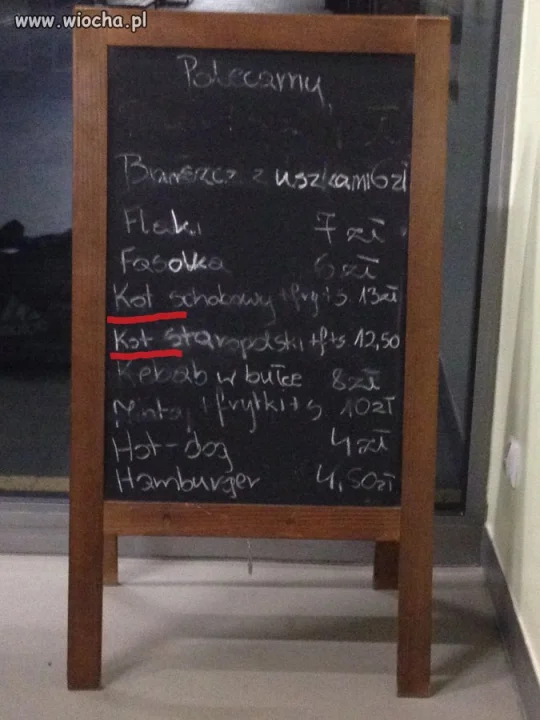 www.wiocha.pl
Polecamy
zł
Barszcz z uszkami 6zł
Flaki 7 zł
Fasolka 6 zł
Kot schobowy + fryt + s 13zł
Kot staropolski + f + s 12,50
Kebab w bułce 8zł
Mintaj + frytki + s 10zł
Hot-dog 4 zł
Hamburger 4,50zł